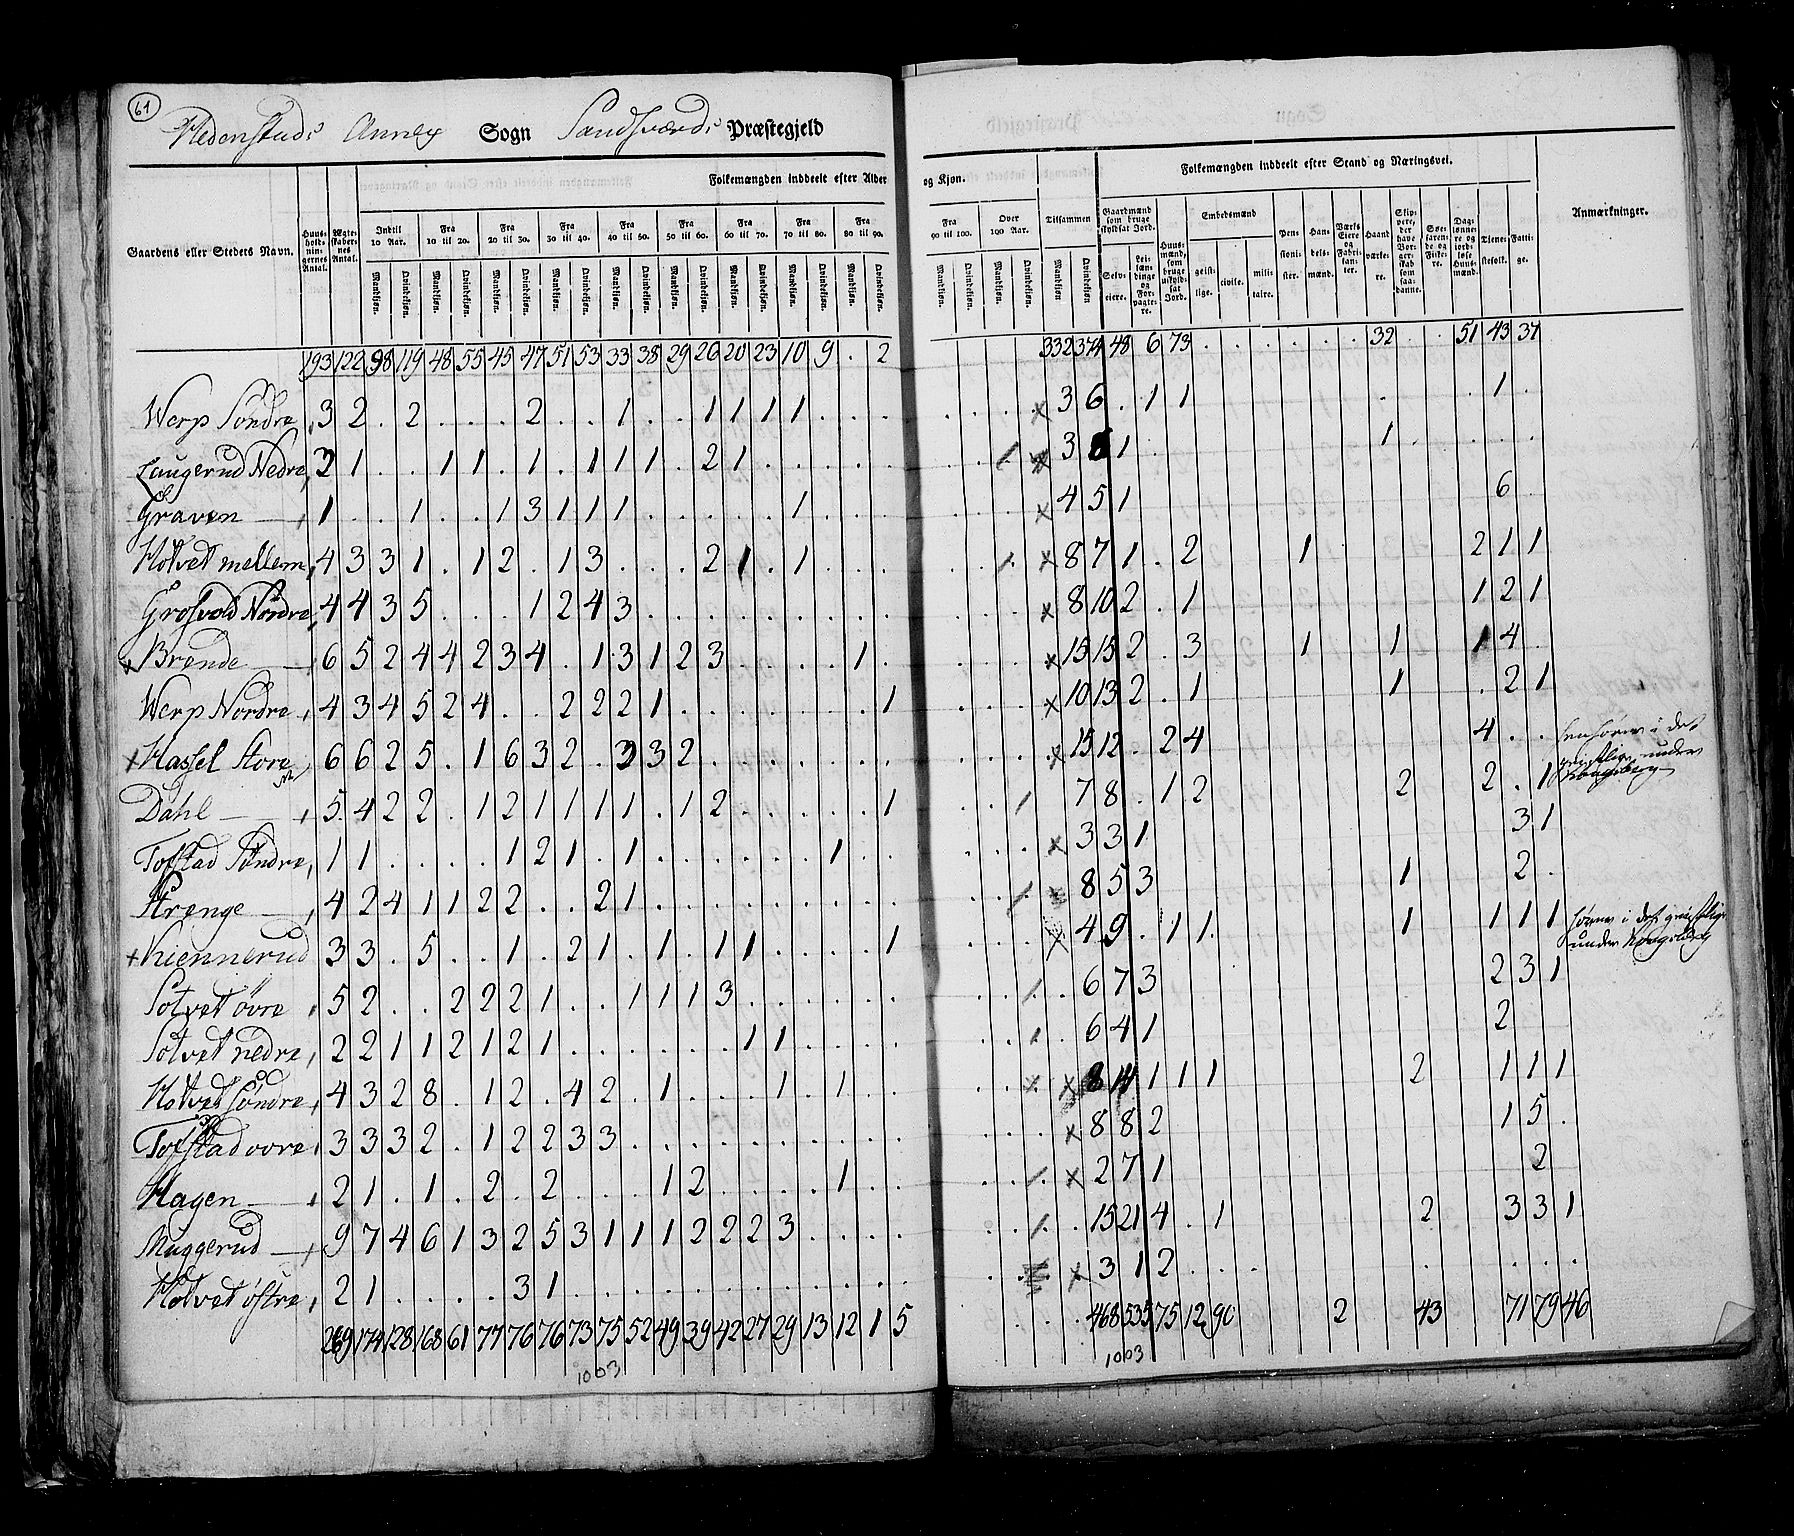 61
Hedenstads Annex Sogn Sandsværds Præstegjeld
Gaardens eller Stedets Navn.
Huus-holdnin-gernes Antal.
Ægte-skaber-nes Antal.
Folkemængden inddeelt efter Alder og Kjøn.
Indtil 10 Aar. Fra 10 til 20. Fra 20 til 30. Fra 30 til 40. Fra 40 til 50. Fra 50 til 60. Fra 60 til 70. Fra 70 til 80. Fra 80 til 90. Fra 90 til 100. Over 100 Aar. Tilsammen
Mandkjøn. Qvindekjøn.
Folkemængden inddeelt efter Stand og Næringsvei.
Gaardmænd som bruge skyldsat Jord.
Selv-eiere. Lei-læn-dinge og For-pagte-re.
Huus-mænd, som bruge uskyld-sat Jord.
Embedsmænd
geist-lige. civile. mili-taire.
Pen-sioni-ster.
Han-dels-mænd.
Haand-værke-re.
Tjene-stefolk. Fatti-ge.
Anmærkninger.
193 122 98 119 48 55 45 47 51 53 33 38 29 26 20 23 10 9 . 2 332 374 48 6 73 . . . . . . 32 . . 51 43 37
Werp Söndre, 3 2 . 2 . . . 2 . . 1 . . 1 1 1 1 . . . x 3 6 . 1 1 1 .
Laugerud Nedre, 1 . . 1 1 . 1 . 1 1 1 . 2 1 . . . . . 3 1 1
Graven 1 . . 1 . . 1 3 1 1 1 . . . . . 1 . . . x 4 5 1 6
Hotvet mellem, 4 3 3 1 . 1 2 . 1 3 . . . 2 1 . 1 . . . x 8 7 1 . 2 1 2 1 1
Grosvold Nordre, 4 4 3 5 . . . 1 2 4 3 . . . . . . . . . x 8 10 2 . 1 1 2 1
x Brende 6 5 2 4 4 2 3 4 . 1 3 1 2 3 . . . . 1 . x 15 15 2 . 3 1 1 1 4
Werp Nordre 4 3 4 5 2 4 . . 2 2 2 1 . . . . . . . 1 x 10 13 2 . 1 1 . 2 1
x Hassel Store 6 6 2 5 . 1 6 3 2 . 3 3 2 . . . . . . . x 15 12 . 2 4 4 . . henhörer i det geistlige under Kongsberg
Dahl 5 4 2 2 . 1 2 1 1 1 1 . 1 2 . . . . . 1 7 8 . 1 2 2 2 . 1
Tofstad Söndre, 1 1 . . . . 1 2 1 . 1 . . . . . . 1 . . x 3 3 1 3 1
Strenge 4 2 4 1 1 2 2 . . 2 1 . . . . . . . . . 8 5 3 1 2 .
x Kiennerud 3 3 . 5 . . 1 . 2 1 . 1 . 1 1 . . . . 1 x 4 9 . 1 1 1 1 1 1 hörer i det geistlige under Kongsberg
Sotvet övre 5 2 . . 2 2 2 1 . . 1 1 1 3 . . . . . . 6 7 3 2 3 1
Sotvet nedre, 2 2 1 1 2 1 2 1 . . . . . . 1 1 . . . . 6 4 1 2
Hotvet söndre, 4 3 2 8 . 1 2 . 4 2 . 1 . . . 1 . 1 . . x 8 11 1 1 1 2 1 1 1
Tofstad ovre 3 3 3 2 . 1 2 2 3 3 . . . . . . . . . . x 8 8 2 1 5 .
Hagen 2 1 . 1 . 2 . 2 . . . 1 2 . . . . 1 . . x 2 7 1 2
Muggerud 9 7 4 6 1 3 2 5 3 1 1 1 2 2 2 3 . . . . 15 21 4 . 1 2 3 3 1
Hotvet östre, 2 1 . . . . 3 1 . . . . . . . . . . . . x 3 1 2
269 174 128 168 61 77 76 76 73 75 52 49 39 42 27 29 13 12 1 5 468 535 75 12 90 2 43 71 79 46
1003 1003